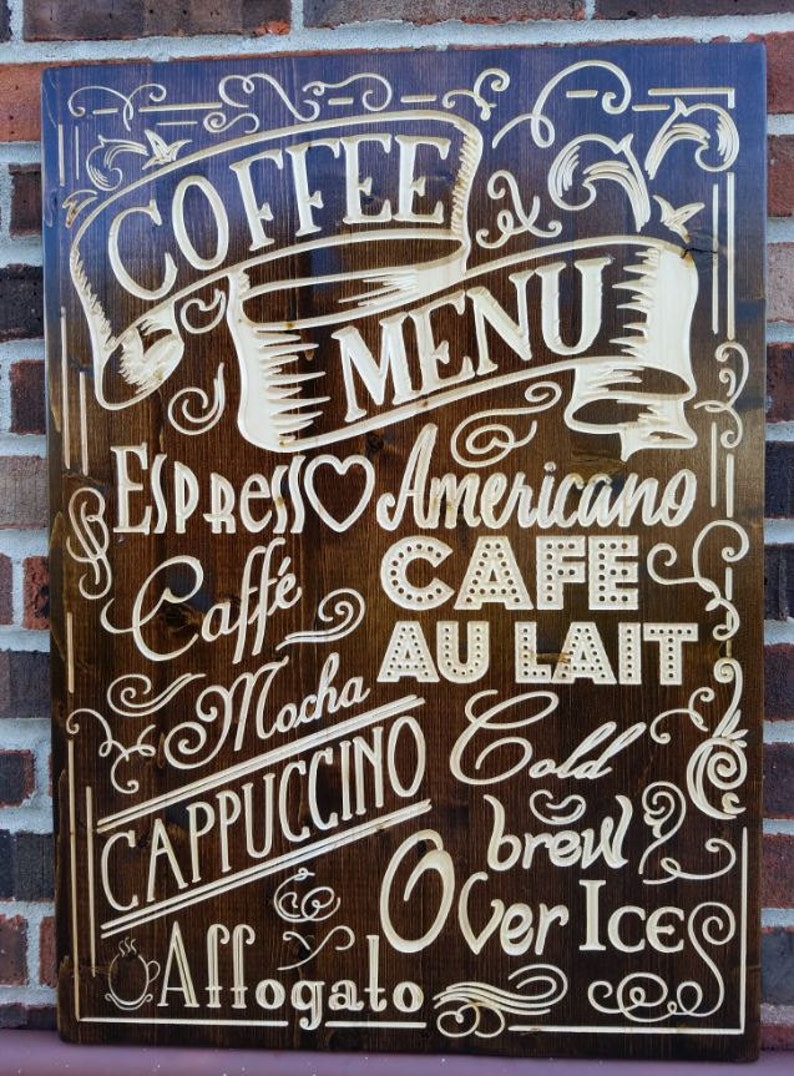 COFFEE
MENU
Espresso Americano
Caffé
Mocha
CAFE
AU LAIT
CAPPUCCINO
Cold
brew
Over Ice
Affogato